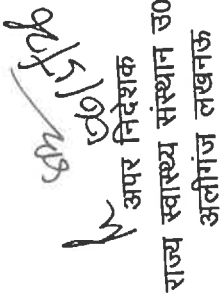 अपर निदेशक
राज्य स्वास्थ्य संस्थान उ0
अलीगंज लखनऊ